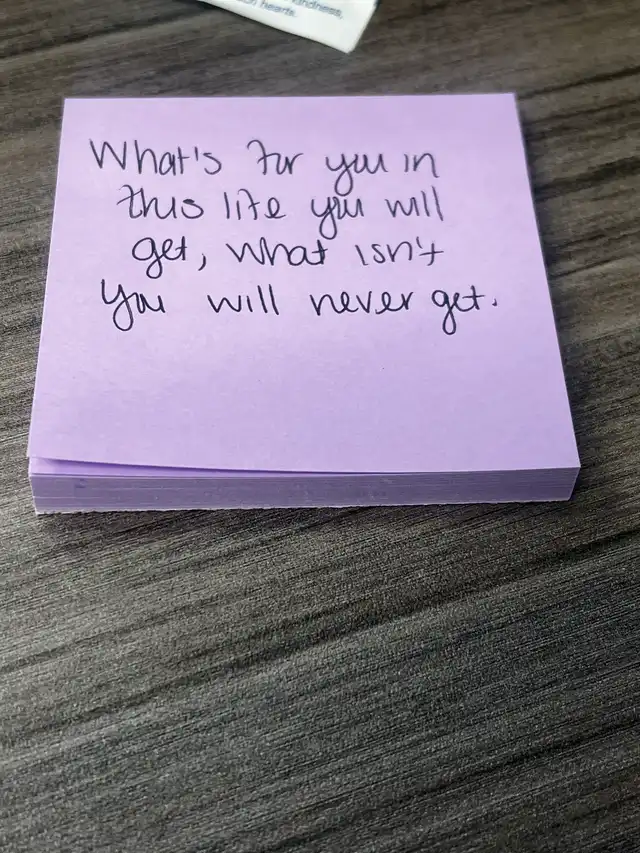 kindness,
hearts.
What's for you in
this life you will
get, what isn't
you will never get.